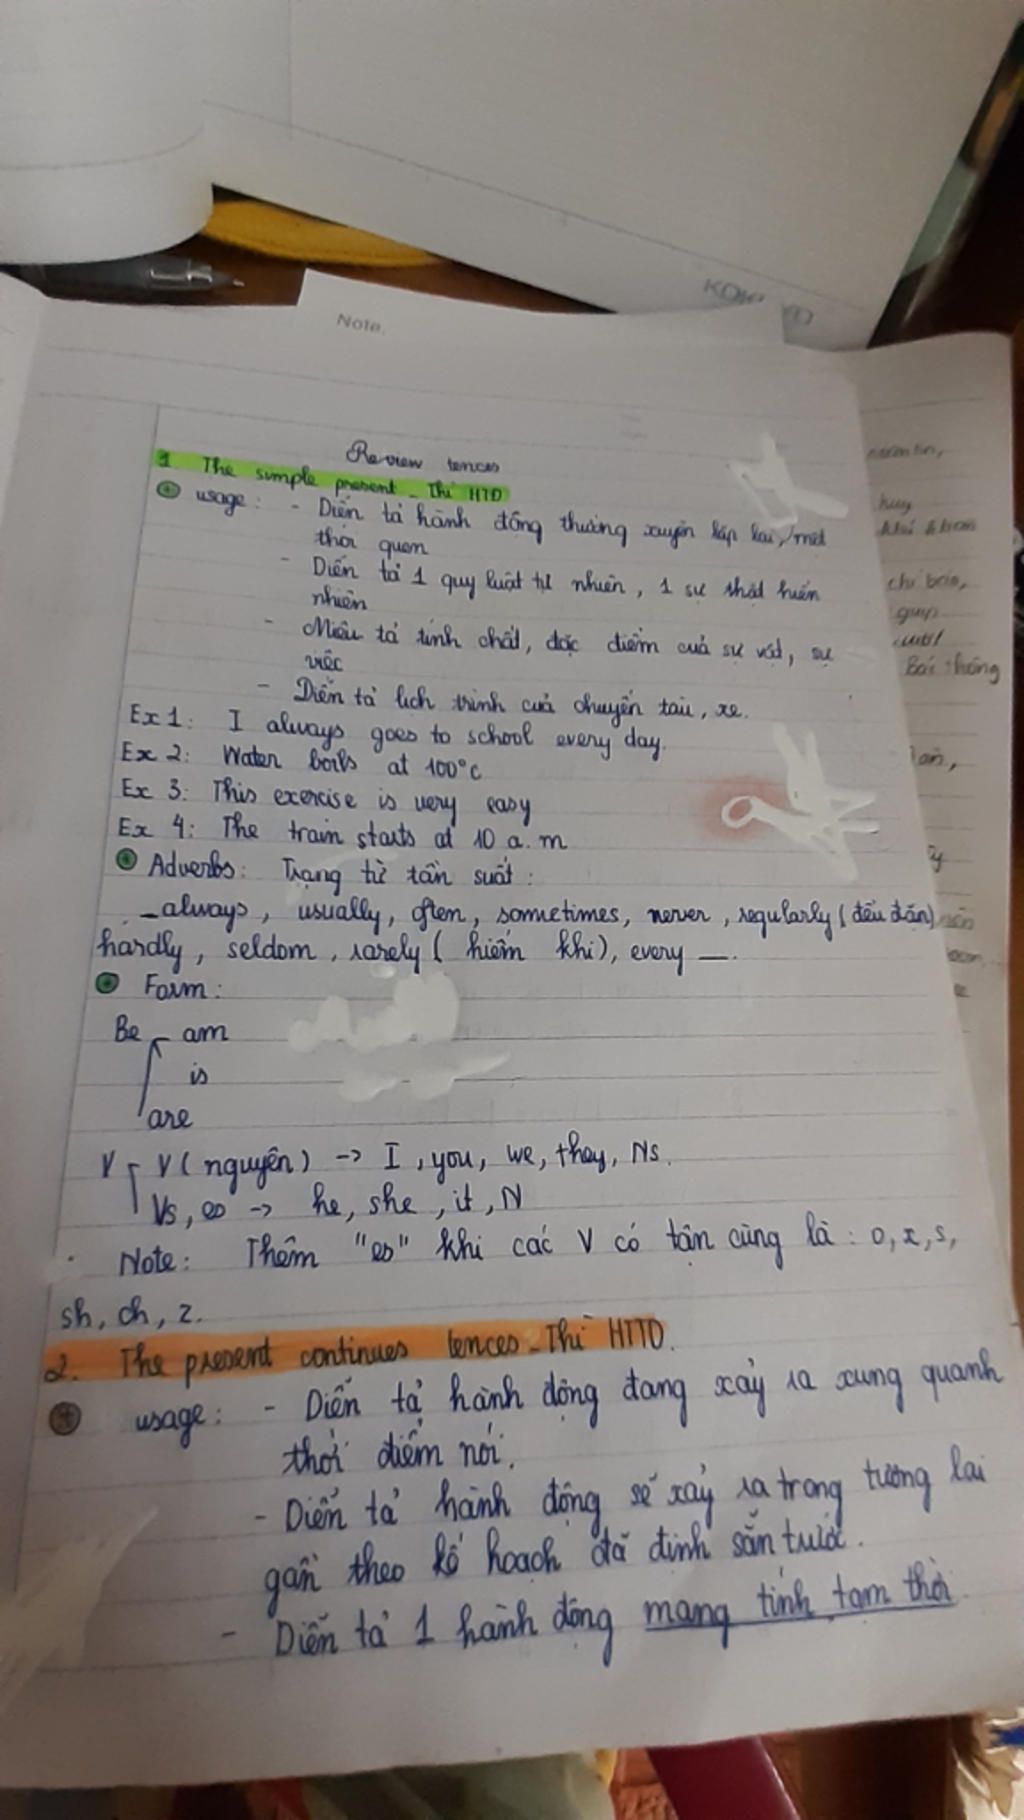 Note.
Review tences
1 The simple present _ Thì HTĐ
usage: - Diễn tả hành động thường xuyên lặp lại, một
thói quen
- Diễn tả 1 quy luật tự nhiên, 1 sự thật hiển
nhiên
- Miêu tả tính chất, đặc điểm của sự vật, sự
việc
- Diễn tả lịch trình của chuyến tàu, xe.
Ex 1: I always goes to school every day.
Ex 2: Water boils at 100°C
Ex 3: This exercise is very easy
Ex 4: The train starts at 10 a.m
Adverbs: Trạng từ tần suất:
_always, usually, often, sometimes, never, regularly (đều đặn)
hardly, seldom, rarely (hiếm khi), every _.
Form:
Be am
is
are
V V(nguyên) -> I, you, we, they, Ns.
Vs, es -> he, she, it, N
Note: Thêm "es" khi các V có tận cùng là: o, x, s,
sh, ch, z.
2. The present continues tences_Thì HTTD.
usage: - Diễn tả hành động đang xảy ra xung quanh
thời điểm nói.
- Diễn tả hành động sẽ xảy ra trong tương lai
gần theo kế hoạch đã định sẵn trước.
- Diễn tả 1 hành động mang tính tạm thời.